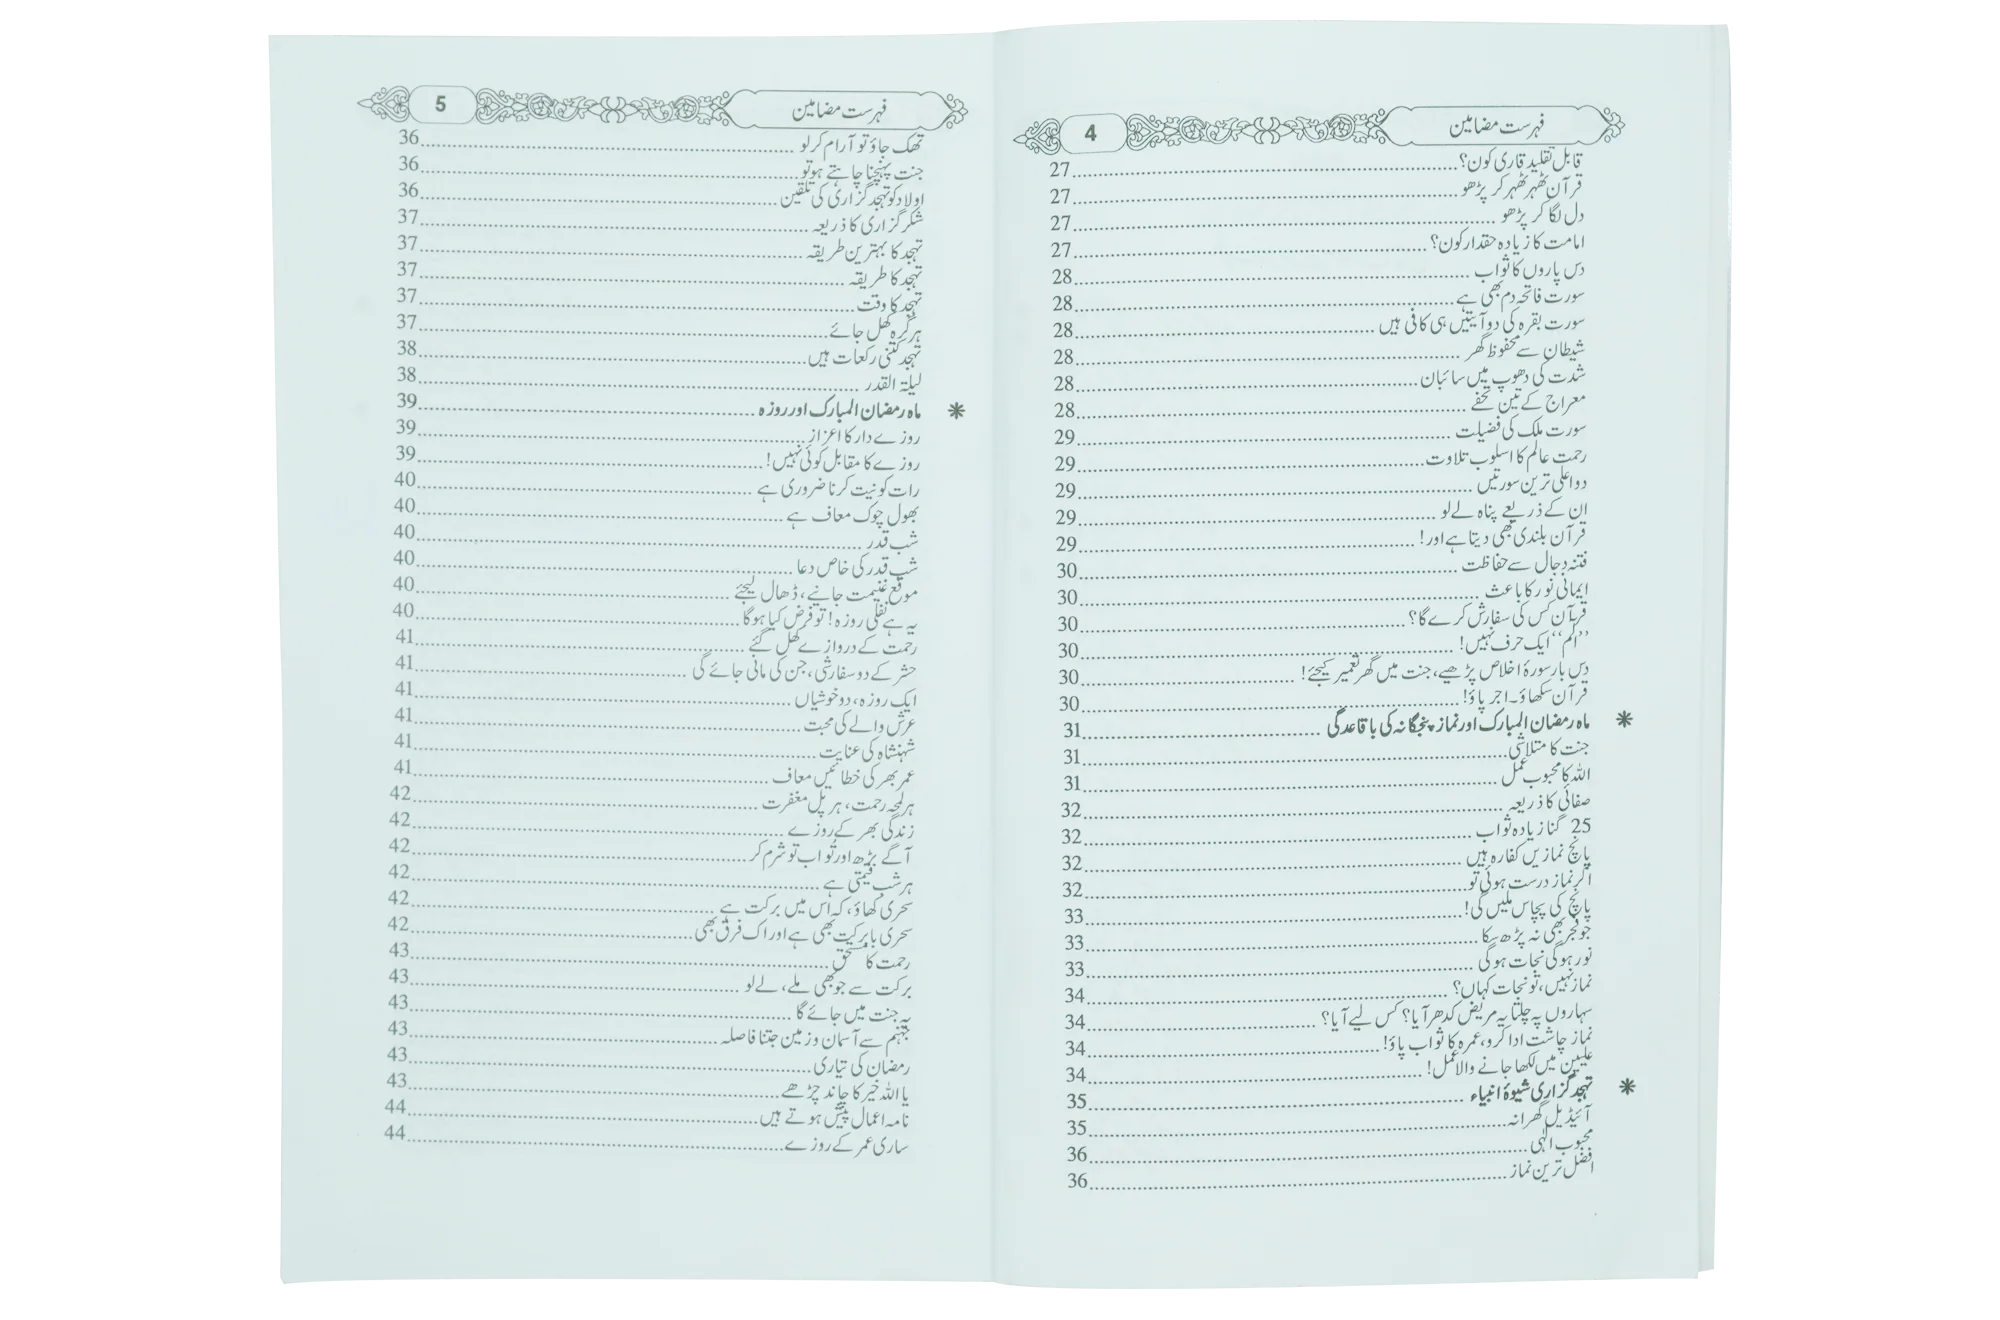 فہرست مضامین 4
قابل تقلید قاری کون؟ 27
قرآن ٹھہر ٹھہر کر پڑھو 27
دل لگا کر پڑھو 27
امامت کا زیادہ حقدار کون؟ 27
دس پاروں کا ثواب 28
سورت فاتحہ دم بھی ہے 28
سورت بقرہ کی دو آیتیں ہی کافی ہیں 28
شیطان سے محفوظ گھر 28
شدت کی دھوپ میں سائبان 28
معراج کے تین تحفے 28
سورت ملک کی فضیلت 29
رحمت عالم کا اسلوب تلاوت 29
دو اعلیٰ ترین سورتیں 29
ان کے ذریعے پناہ لے لو 29
قرآن بلندی بھی دیتا ہے اور! 29
فتنہ دجال سے حفاظت 30
ایمانی نور کا باعث 30
قرآن کس کی سفارش کرے گا؟ 30
’’الم‘‘ ایک حرف نہیں! 30
دس بار سورۂ اخلاص پڑھیے، جنت میں گھر تعمیر کیجئے! 30
قرآن سکھاؤ۔ اجر پاؤ! 30
✳ ماہ رمضان المبارک اور نماز پنجگانہ کی باقاعدگی 31
جنت کا متلاشی 31
اللہ کا محبوب عمل 31
صفائی کا ذریعہ 32
25 گنا زیادہ ثواب 32
پانچ نمازیں کفارہ ہیں 32
اگر نماز درست ہوئی تو 32
پانچ کی پچاس ملیں گی! 33
جو فجر بھی نہ پڑھ سکا 33
نور ہوگی نجات ہوگی 33
نماز نہیں، تو نجات کہاں؟ 34
سہاروں پہ چلتا یہ مریض کدھر آیا؟ کس لیے آیا؟ 34
نماز چاشت ادا کرو، عمرہ کا ثواب پاؤ! 34
علیین میں لکھا جانے والا عمل! 34
✳ تہجد گزاری شیوۂ انبیاء 35
آئیڈیل گھرانہ 35
محبوب الٰہی 36
افضل ترین نماز 36
فہرست مضامین 5
تھک جاؤ تو آرام کر لو 36
جنت پہنچنا چاہتے ہو تو 36
اولاد کو تہجد گزاری کی تلقین 36
شکر گزاری کا ذریعہ 37
تہجد کا بہترین طریقہ 37
تہجد کا طریقہ 37
تہجد کا وقت 37
ہر گرہ کھل جائے 37
تہجد کتنی رکعات ہیں 38
لیلۃ القدر 38
✳ ماہ رمضان المبارک اور روزہ 39
روزے دار کا اعزاز 39
روزے کا مقابل کوئی نہیں! 39
رات کو نیت کرنا ضروری ہے 40
بھول چوک معاف ہے 40
شب قدر 40
شب قدر کی خاص دعا 40
موقع غنیمت جانیے، ڈھال لیجئے 40
یہ ہے نفلی روزہ! تو فرض کیا ہوگا 40
رحمت کے دروازے کھل گئے 41
حشر کے دو سفارشی، جن کی مانی جائے گی 41
ایک روزہ، دو خوشیاں 41
عرش والے کی محبت 41
شہنشاہ کی عنایت 41
عمر بھر کی خطائیں معاف 41
ہر لمحہ رحمت، ہر پل مغفرت 42
زندگی بھر کے روزے 42
آگے بڑھ اور تو اب تو شرم کر 42
ہر شب قیمتی ہے 42
سحری کھاؤ، کہ اس میں برکت ہے 42
سحری بابرکت بھی ہے اور اک فرق بھی 42
رحمت کا مستحق 43
برکت سے جو بھی ملے، لے لو 43
یہ جنت میں جائے گا 43
جہنم سے آسمان وزمین جتنا فاصلہ 43
رمضان کی تیاری 43
یا اللہ خیر کا چاند چڑھے 43
نامہ اعمال پیش ہوتے ہیں 44
ساری عمر کے روزے 44